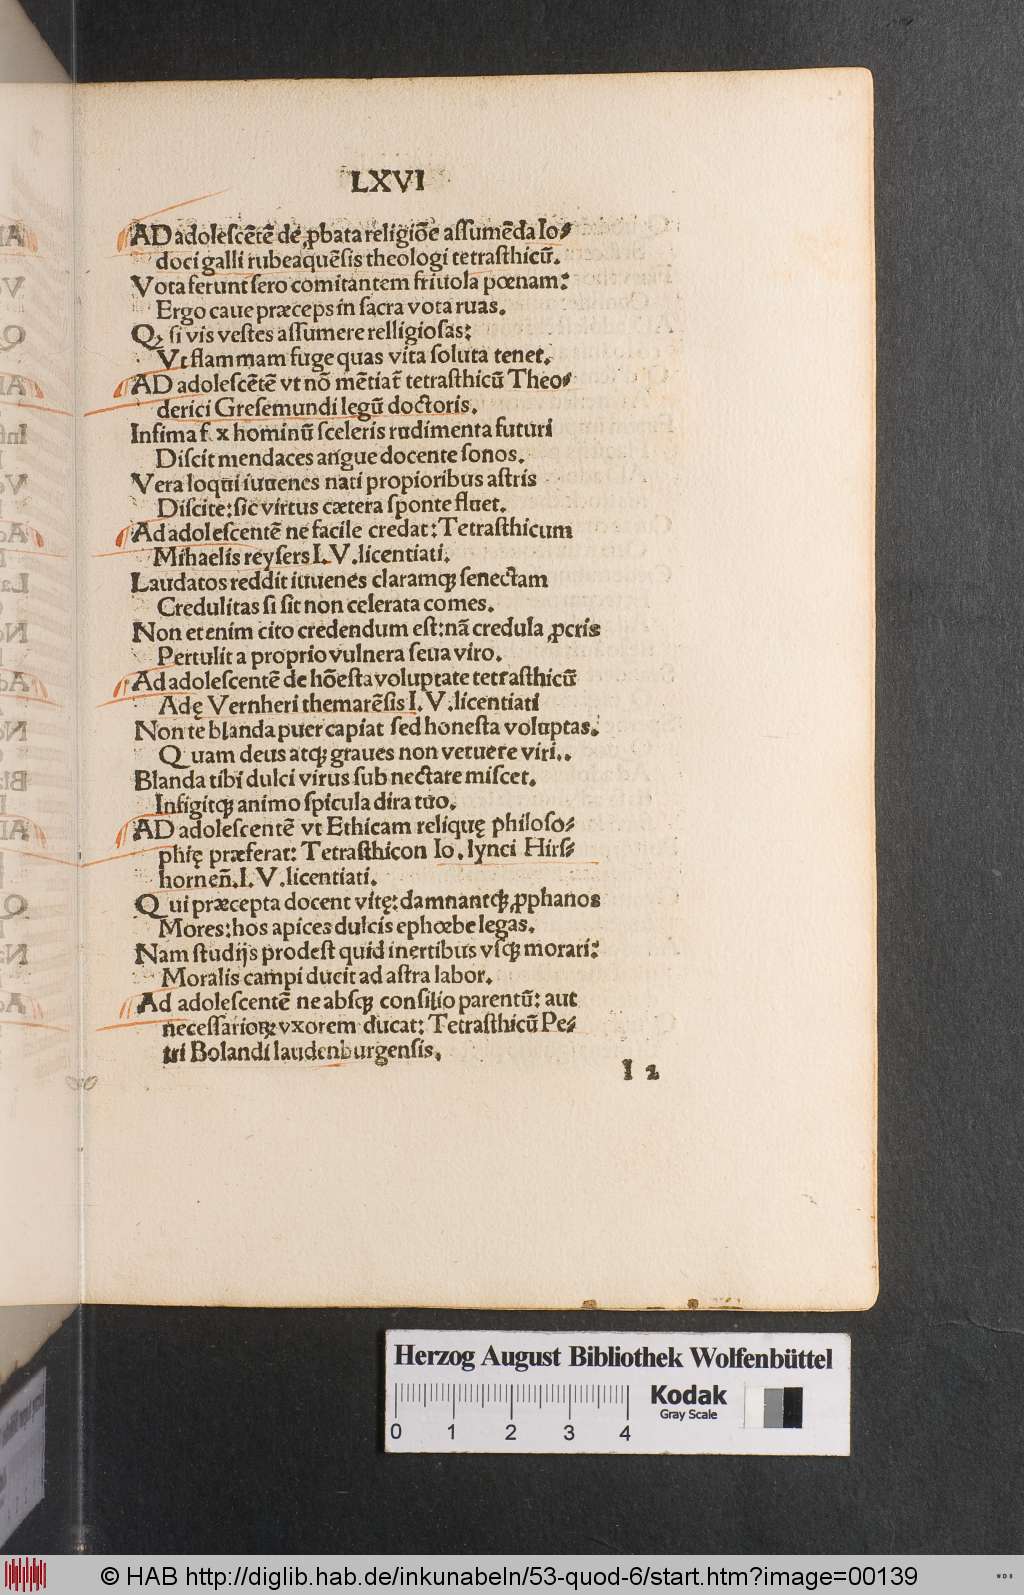 LXVI
AD adolescētē de ꝓbata religiōe assumēda Io⸗
doci galli rubeaquēsis theologi tetrasthicū.
Vota ferunt sero comitantem friuola pœnam:
Ergo caue præceps in sacra vota ruas.
Qꝫ si vis vestes assumere relligiosas:
Vt flammam fuge quas vita soluta tenet.
AD adolescētē vt nō mētiat᷑ tetrasthicū Theo⸗
derici Gresemundi legū doctoris.
Infima f. x hominū sceleris rudimenta futuri
Discit mendaces arigue docente sonos.
Vera loqui iuuenes nati propioribus astris
Discite: sic virtus cætera sponte fluet.
Ad adolescentē ne facile credat: Tetrasthicum
Mihaelis reysers I. V. licentiati.
Laudatos reddit iuuenes claramqꝫ senectam
Credulitas si sit non celerata comes.
Non etenim cito credendum est: nā credula ꝓcris
Pertulit a proprio vulnera seua viro.
Ad adolescentē de hōesta voluptate tetrasthicū
Adę Vernheri themarēsis I. V. licentiati
Non te blanda puer capiat sed honesta voluptas.
Quam deus atqꝫ graues non vetuere viri..
Blanda tibi dulci virus sub nectare miscet.
Infigitqꝫ animo spicula dira tuo.
AD adolescentē vt Ethicam reliquę philoso⸗
phię præferat: Tetrasthicon Io. lynci Hirs⸗
hornen̄. I. V. licentiati.
Qui præcepta docent vitę: damnantqꝫ ꝓphanos
Mores: hos apices dulcis ephœbe legas.
Nam studijs prodest quid inertibus vsqꝫ morari:
Moralis campi ducit ad astra labor.
Ad adolescentē ne absqꝫ consilio parentū: aut
necessarioꝝ vxorem ducat: Tetrasthicū Pe⸗
tri Bolandi laudenburgensis.
I 2
Herzog August Bibliothek Wolfenbüttel
Kodak
Gray Scale
0 1 2 3 4
© HAB http://diglib.hab.de/inkunabeln/53-quod-6/start.htm?image=00139